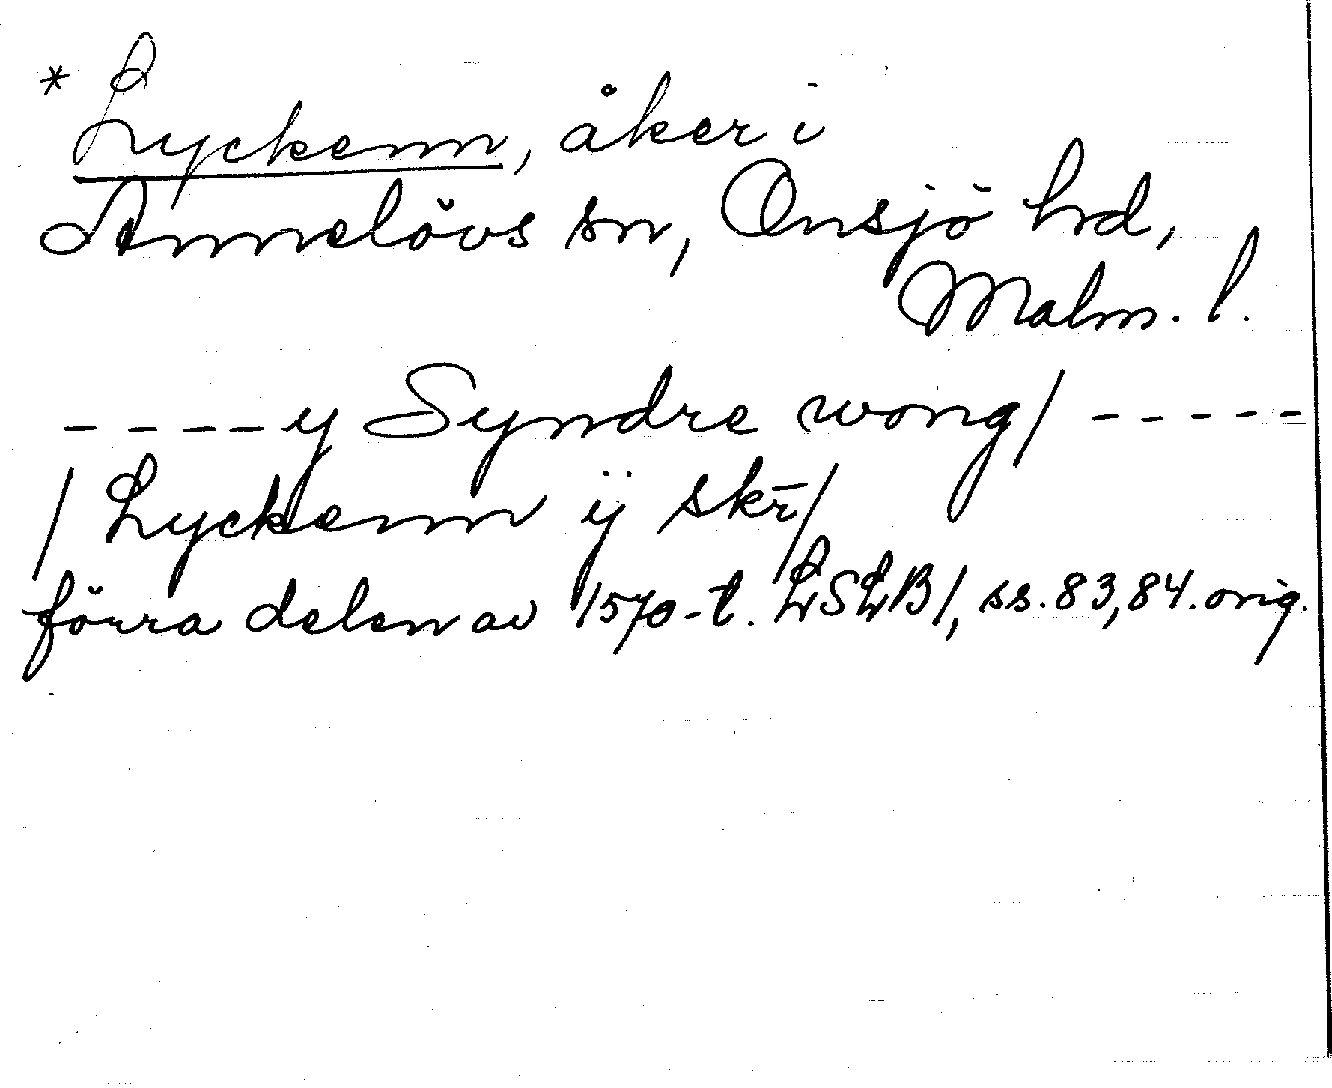 * Lyckenn, åker i
Annelövs sn, Onsjö hd,
Malm. l.
- - - - y Syndre wong/ - - - - -
/ Lyckenn ij skr̄/
förra delen av 1570-t. LSLB/, ss. 83, 84. orig.